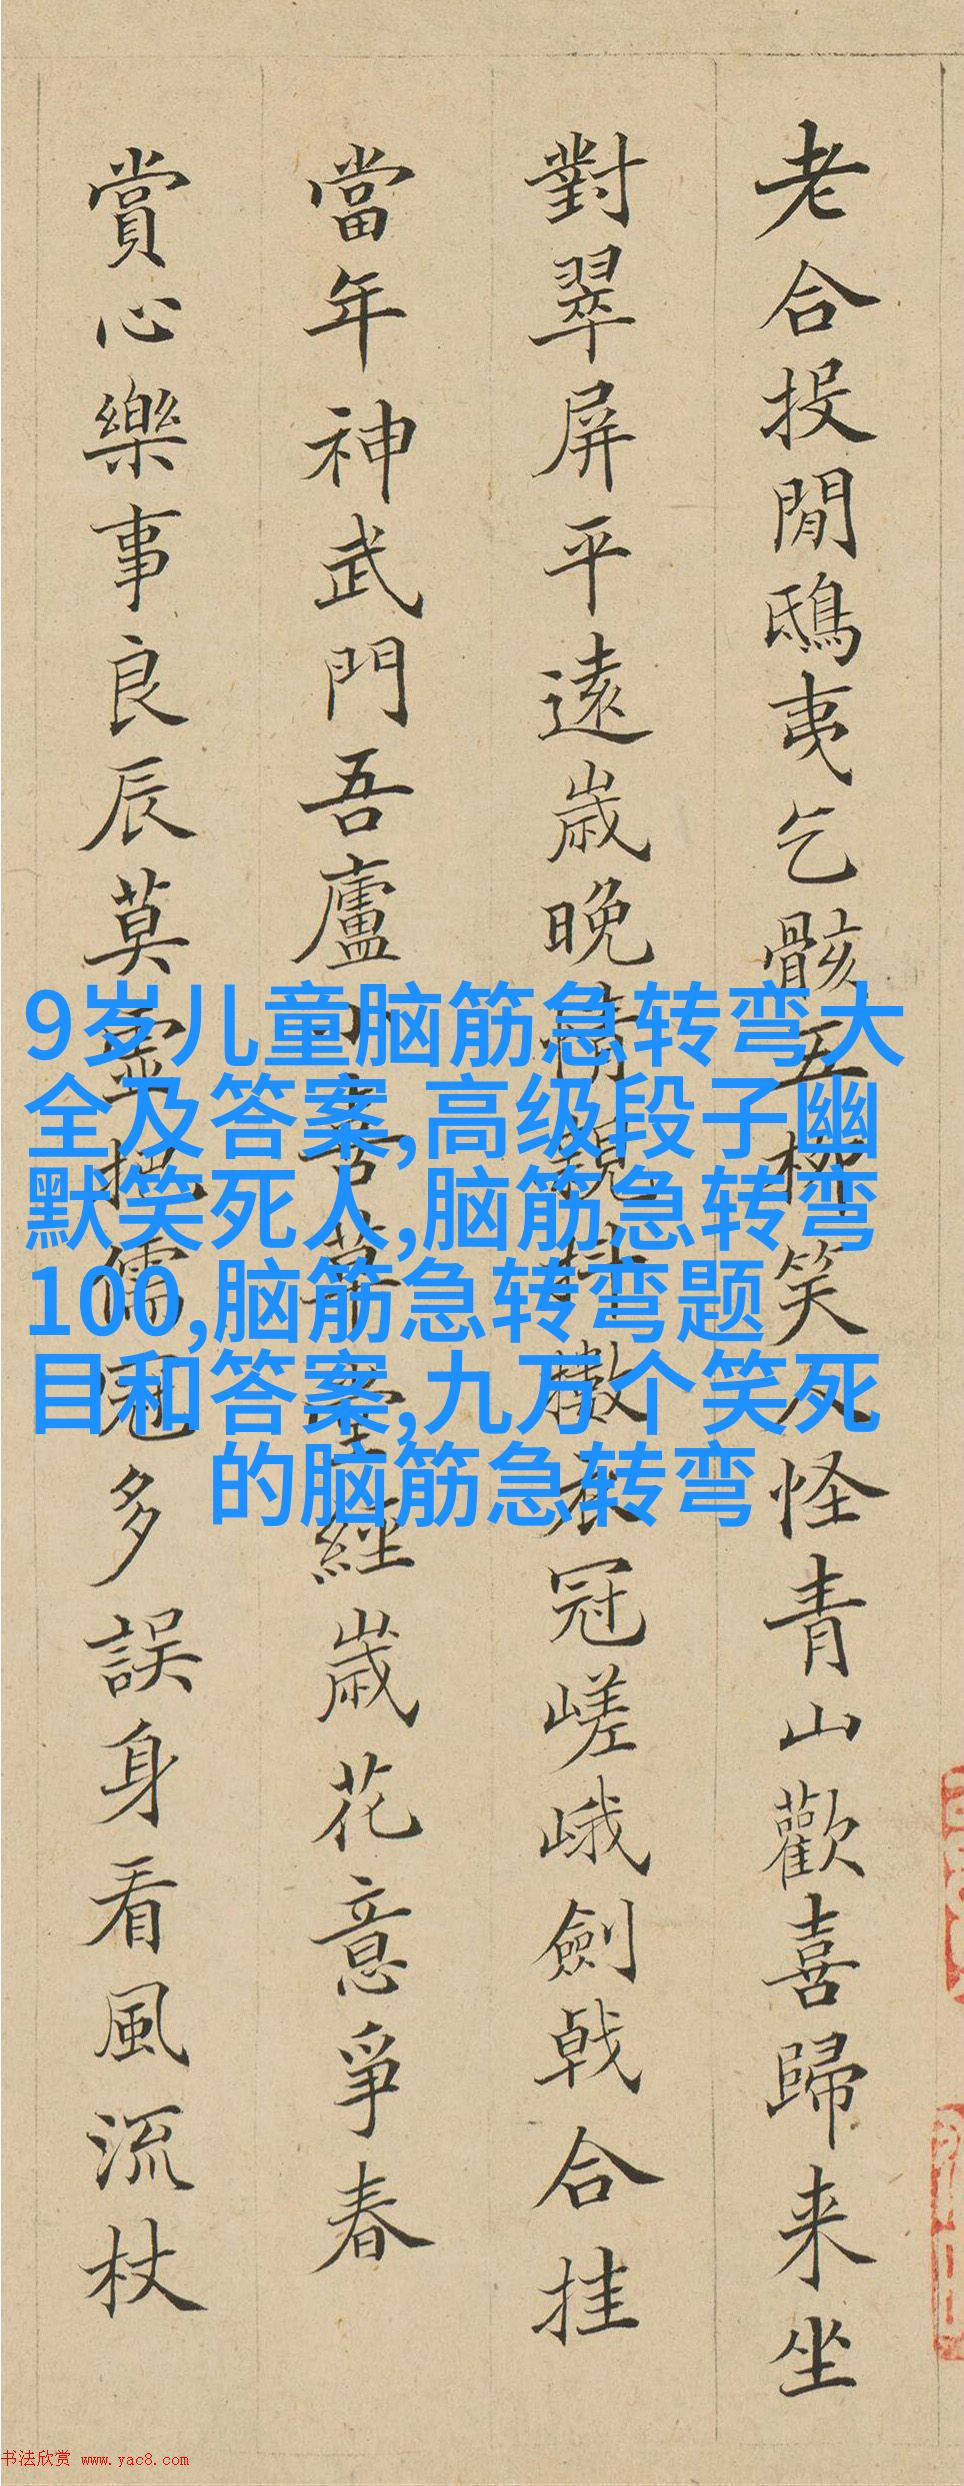 老合投閒鴟夷乞骸五柳笑人怪青山歡喜歸来坐
對翠屏平遠歲晚情親檄衣冠嵯峨劍戟合挂
當年神武門吾廬小草堂經歲花意爭春
賞心樂事良辰莫虛儒冠多誤身看風流杖
9岁儿童脑筋急转弯大
全及答案,高级段子幽
默笑死人,脑筋急转弯
100,脑筋急转弯题
目和答案,九万个笑死
的脑筋急转弯
书法欣赏 www.yac8.com